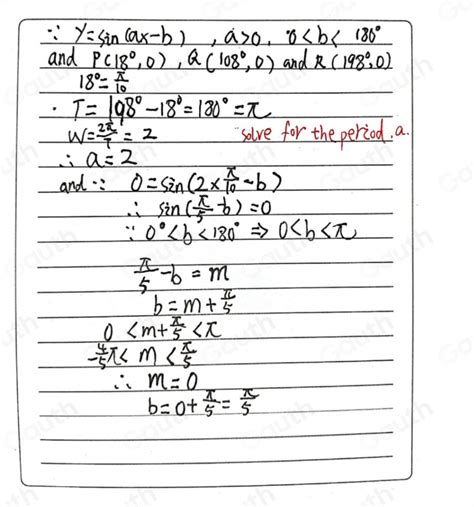 ∵ y=sin(ax-b) , a>0, 0<b< 180°
and P(18°,0), Q(108°,0) and R(198°,0)
18°=π/10
· T= 198°-18°=180°=π
W=2π/T=2 solve for the period. a.
∴ a=2
and ∵ 0=sin(2×π/10-b)
∴ sin(π/5-b)=0
∵ 0°<b<180° ⇒ 0<b<π
π/5-b=m
b=m+π/5
0 <m+π/5<π
-4/5π< m <π/5
∴ m=0
b=0+π/5=π/5
Gauth